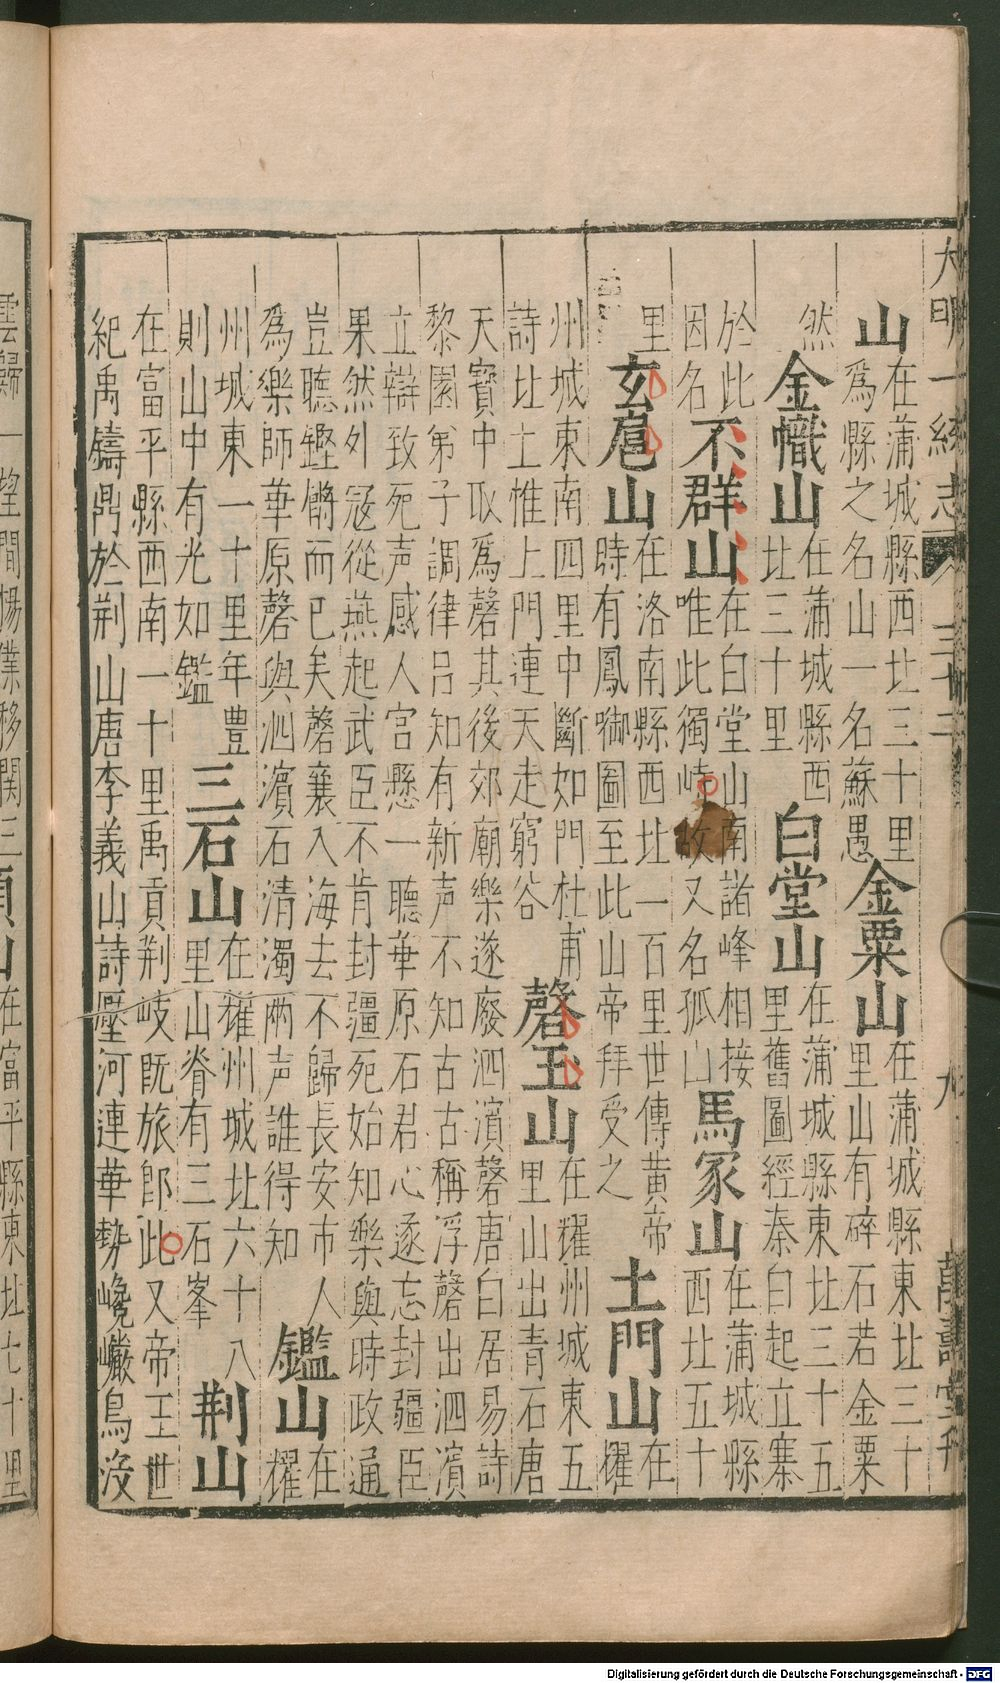 大明一統志 卷三十二 九 萬壽堂刊
山 在蒲城縣西北三十里
爲縣之名山一名蘇愚
金粟山 在蒲城縣東北三十
里山有碎石若金粟
然
金幟山 在蒲城縣西
北三十里
白堂山 在蒲城縣東北三十五
里舊圖經秦白起立寨
於此
因名
不群山 在白堂山南諸峰相接
唯此獨峙故又名孤山
馬冢山 在蒲城縣
西北五十
里
玄扈山 在洛南縣西北一百里世傳黃帝
時有鳳啣圖至此山帝拜受之
土門山 在
耀
州城東南四里中斷如門杜甫
詩北土惟上門連天走窮谷
磬玉山 在耀州城東五
里山出青石唐
天寶中取爲磬其後郊廟樂遂廢泗濱磬唐白居易詩
黎園第子調律呂知有新声不知古古稱浮磬出泗濱
立辯致死声感人宮懸一聽華原石君心遂忘封疆臣
果然外冦從燕起武臣不肯封疆死始知樂與時政通
豈聽鏗鏘而已矣磬襄入海去不歸長安市人
爲樂師華原磬與泗濱石清濁兩声誰得知
鑑山 在
耀
州城東一十里年豊
則山中有光如鑑
三石山 在耀州城北六十八
里山脊有三石峯
荆山
在富平縣西南一十里禹貢荆岐既旅即此又帝王世
紀禹鑄鼎於荆山唐李義山詩壓河連華勢巉巗鳥沒
雲歸一望間楊僕移關三 頻山 在富平縣東北七十里
Digitalisierung gefördert durch die Deutsche Forschungsgemeinschaft - DFG